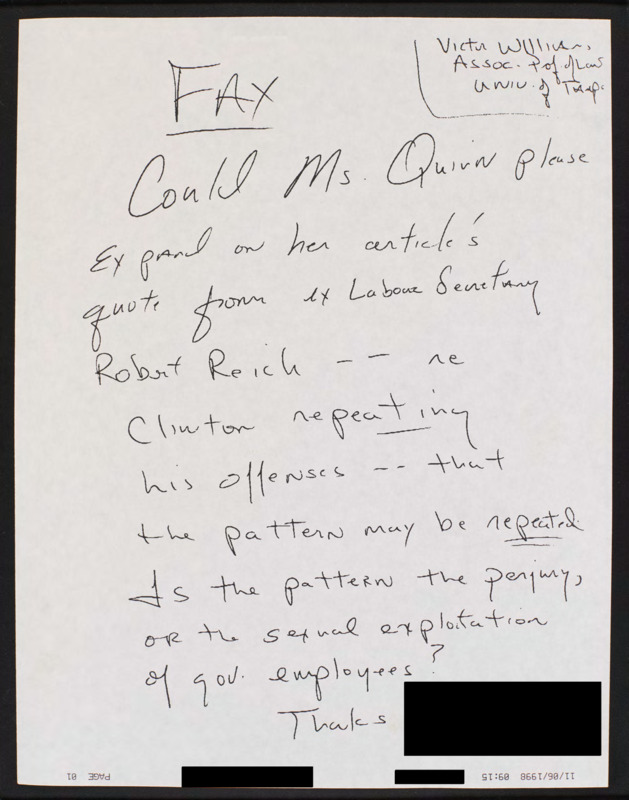 Victor Williams,
Assoc. Prof. of Law
Univ. of
FAX
Could Ms. Quinn please
Expand on her article's
quote from ex Labour Secretary
Robert Reich -- re
Clinton repeating
his offenses -- that
the pattern may be repeated.
Is the pattern the perjury,
or the sexual exploitation
of gov. employees?
Thaks
11/06/1998 09:15
PAGE 01